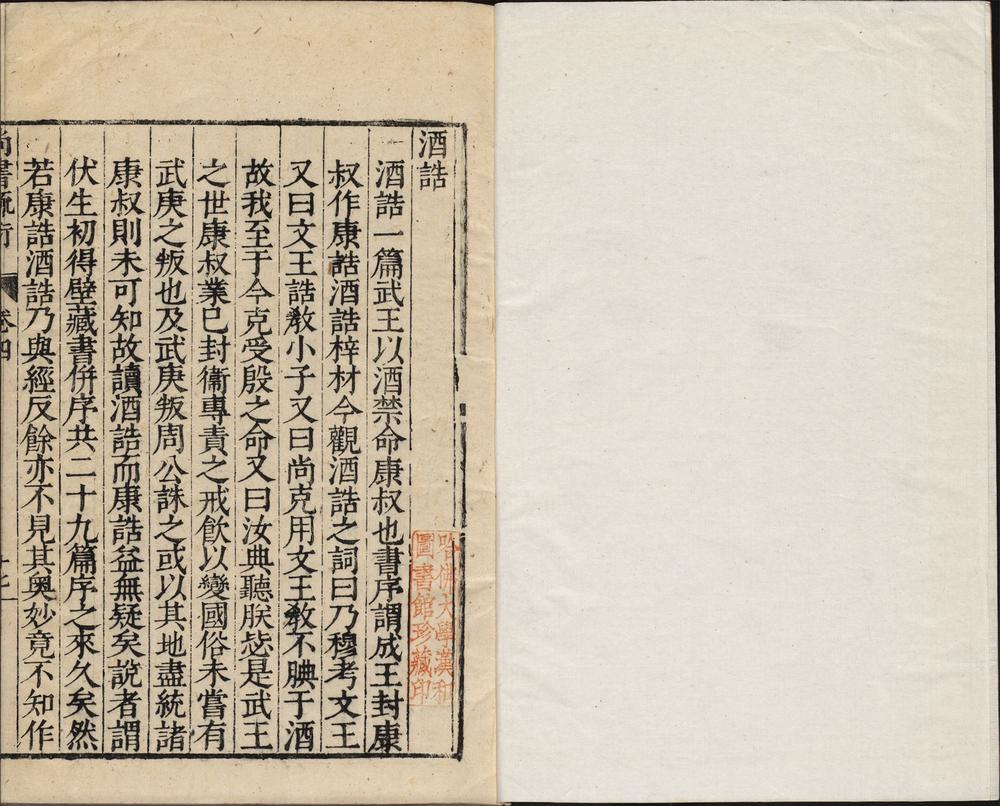 酒誥
酒誥一篇武王以酒禁命康叔也書序謂成王封康
叔作康誥酒誥梓材今觀酒誥之詞曰乃穆考文王
又曰文王誥敎小子又曰尚克用文王敎不腆于酒
故我至于今克受殷之命又曰汝典聽朕毖是武王
之世康叔業已封衞專責之戒飮以變國俗未嘗有
武庚之叛也及武庚叛周公誅之或以其地盡統諸
康叔則未可知故讀酒誥而康誥益無疑矣說者謂
伏生初得壁藏書併序共二十九篇序之來久矣然
若康誥酒誥乃與經反餘亦不見其奥妙竟不知作
尚書疏衍
卷四
哈佛大學漢和
圖書館珍藏印